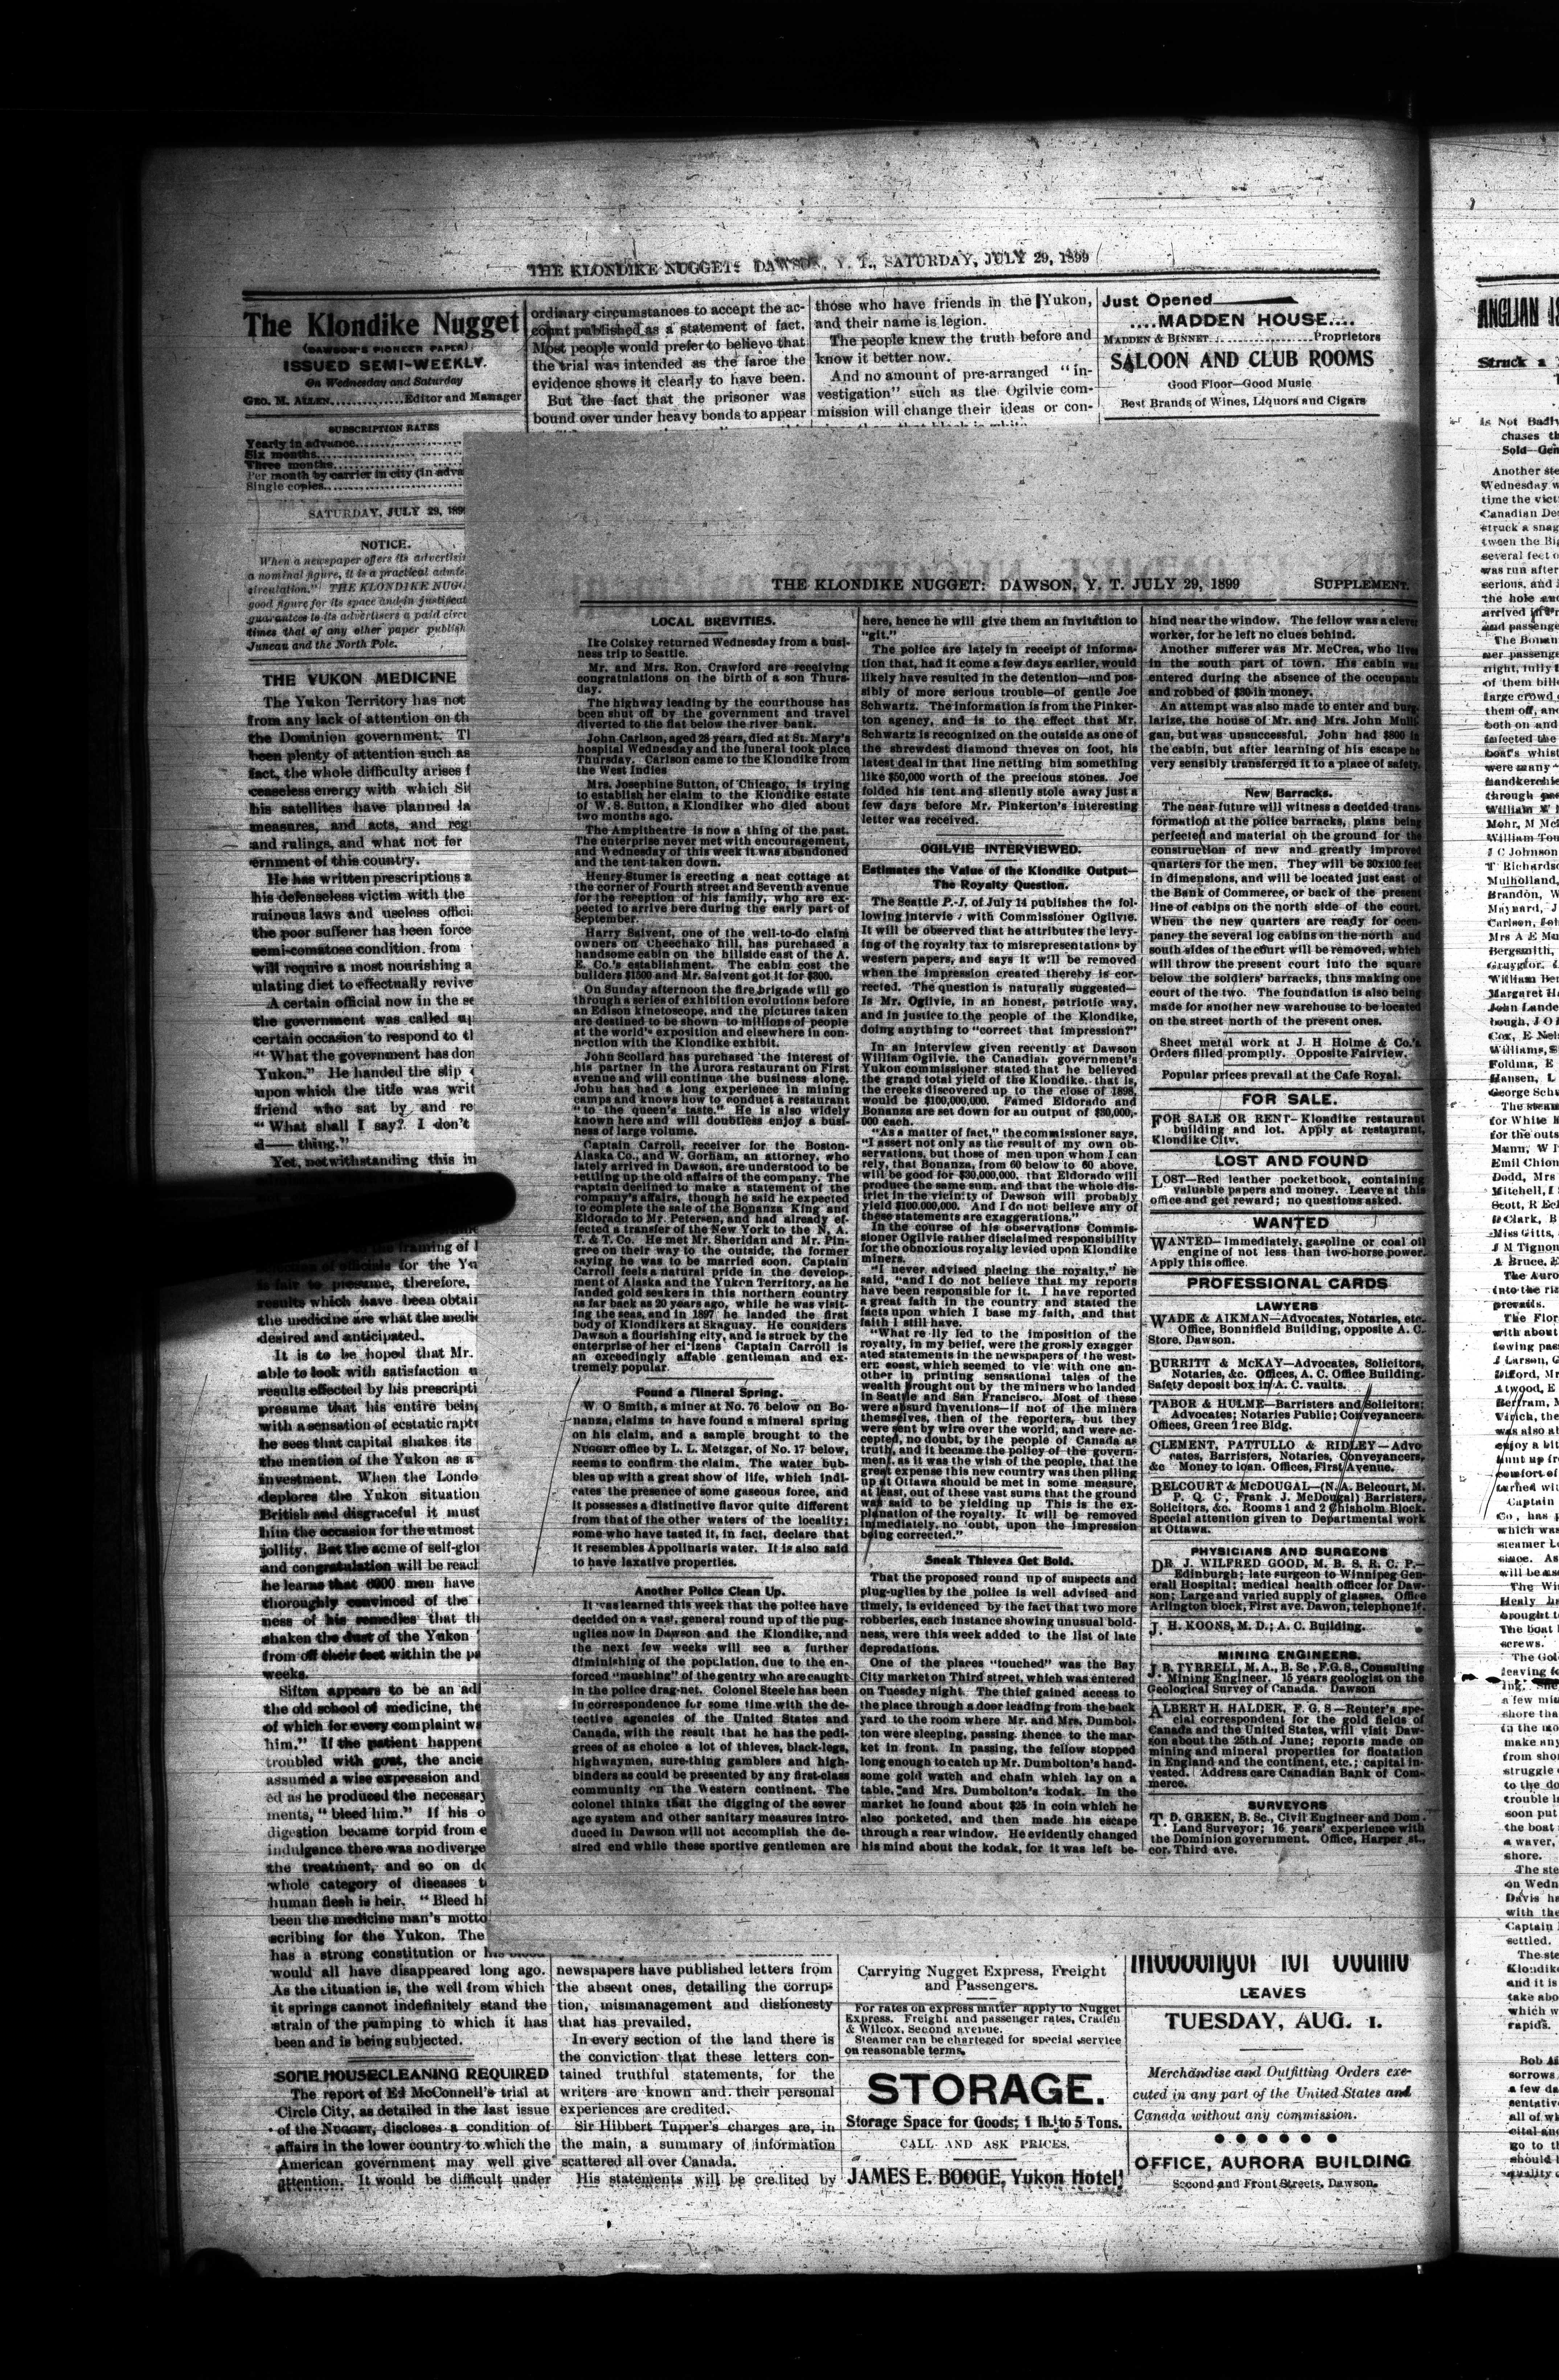 THE KLONDIKE NUGGET: DAWSON, Y. T., SATURDAY, JULY 29, 1899
The Klondike Nugget
(DAWSON'S PIONEER PAPER)
ISSUED SEMI-WEEKLY.
On Wednesday and Saturday
GEO. M. ALLEN..............Editor and Manager
SUBSCRIPTION RATES
Yearly in advance
Six months
Three months
Per month by carrier in city (in adva
Single copies
SATURDAY, JULY 29, 189
NOTICE.
When a newspaper offers its advertisin
a nominal figure, it is a practical admis
circulation." THE KLONDIKE NUGG
good figure for its space and in justificat
guarantees to its advertisers a paid circu
times that of any other paper publish
Juneau and the North Pole.
THE YUKON MEDICINE
The Yukon Territory has not
from any lack of attention on th
the Dominion government. Tl
been plenty of attention such as
fact, the whole difficulty arises f
ceaseless energy with which Sif
his satellites have planned la
measures, and acts, and reg
and rulings, and what not for
ernment of this country.
He has written prescriptions a
his defenseless victim with the
ruinous laws and useless offici
the poor sufferer has been force
semi-comatose condition, from
will require a most nourishing a
ulating diet to effectually revive
A certain official now in the se
the government was called up
certain occasion to respond to th
"What the government has don
Yukon." He handed the slip
upon which the title was writ
friend who sat by and re
"What shall I say? I don't
d—— thing."
Yet, notwithstanding this in
framing of l
officials for the Yu
is fair to presume, therefore,
results which have been obtain
the medicine are what the medi
desired and anticipated.
It is to be hoped that Mr.
able to look with satisfaction u
results effected by his prescripti
presume that his entire being
with a sensation of ecstatic raptu
he sees that capital shakes its
the mention of the Yukon as a
investment. When the Londo
deplores the Yukon situation
British and disgraceful it must
him the occasion for the utmost
jollity. But the acme of self-glor
and congratulation will be reacl
he learns that 6000 men have
thoroughly convinced of the
ness of his remedies that th
shaken the dust of the Yukon
from off their feet within the pa
weeks.
Sifton appears to be an adl
the old school of medicine, the
of which for every complaint wa
him." If the patient happene
troubled with gout, the ancie
assumed a wise expression and
ed as he produced the necessary
ments, "bleed him." If his o
digestion became torpid from e
indulgence there was no diverge
the treatment, and so on do
whole category of diseases t
human flesh is heir. "Bleed hi
been the medicine man's motto
scribing for the Yukon. The
has a strong constitution or his blood
would all have disappeared long ago.
As the situation is, the well from which
it springs cannot indefinitely stand the
strain of the pumping to which it has
been and is being subjected.
SOME HOUSECLEANING REQUIRED
The report of Ed McConnell's trial at
Circle City, as detailed in the last issue
of the NUGGET, discloses a condition of
affairs in the lower country to which the
American government may well give
attention. It would be difficult under
ordinary circumstances to accept the ac-
count published as a statement of fact.
Most people would prefer to believe that
the trial was intended as the farce the
evidence shows it clearly to have been.
But the fact that the prisoner was
bound over under heavy bonds to appear
those who have friends in the Yukon,
and their name is legion.
The people knew the truth before and
know it better now.
And no amount of pre-arranged "in-
vestigation" such as the Ogilvie com-
mission will change their ideas or con-
Just Opened
....MADDEN HOUSE....
MADDEN & BINNET...............Proprietors
SALOON AND CLUB ROOMS
Good Floor—Good Music
Best Brands of Wines, Liquors and Cigars
THE KLONDIKE NUGGET: DAWSON, Y. T. JULY 29, 1899 SUPPLEMENT.
LOCAL BREVITIES.
Ike Colskey returned Wednesday from a busi-
ness trip to Seattle.
Mr. and Mrs. Ron. Crawford are receiving
congratulations on the birth of a son Thurs-
day.
The highway leading by the courthouse has
been shut off by the government and travel
diverted to the flat below the river bank.
John Carlson, aged 28 years, died at St. Mary's
hospital Wednesday and the funeral took place
Thursday. Carlson came to the Klondike from
the West Indies
Mrs. Josephine Sutton, of Chicago, is trying
to establish her claim to the Klondike estate
of W. S. Sutton, a Klondiker who died about
two months ago.
The Ampitheatre is now a thing of the past.
The enterprise never met with encouragement,
and Wednesday of this week it was abandoned
and the tent taken down.
Henry Stumer is erecting a neat cottage at
the corner of Fourth street and Seventh avenue
for the reception of his family, who are ex-
pected to arrive here during the early part of
September.
Harry Salvent, one of the well-to-do claim
owners on Cheechako hill, has purchased a
handsome cabin on the hillside east of the A.
E. Co.'s establishment. The cabin cost the
builders $1500 and Mr. Salvent got it for $300.
On Sunday afternoon the fire brigade will go
through a series of exhibition evolutions before
an Edison kinetoscope, and the pictures taken
are destined to be shown to millions of people
at the world's exposition and elsewhere in con-
nection with the Klondike exhibit.
John Scollard has purchased the interest of
his partner in the Aurora restaurant on First
avenue and will continue the business alone.
John has had a long experience in mining
camps and knows how to conduct a restaurant
"to the queen's taste." He is also widely
known here and will doubtless enjoy a busi-
ness of large volume.
Captain Carroll, receiver for the Boston-
Alaska Co., and W. Gorham, an attorney, who
lately arrived in Dawson, are understood to be
settling up the old affairs of the company. The
captain declined to make a statement of the
company's affairs, though he said he expected
to complete the sale of the Bonanza King and
Eldorado to Mr. Petersen, and had already ef-
fected a transfer of the New York to the N. A.
T. & T. Co. He met Mr. Sheridan and Mr. Pin-
gree on their way to the outside, the former
saying he was to be married soon. Captain
Carroll feels a natural pride in the develop-
ment of Alaska and the Yukon Territory, as he
landed gold seekers in this northern country
as far back as 20 years ago, while he was visit-
ing the seas, and in 1897 he landed the first
body of Klondikers at Skaguay. He considers
Dawson a flourishing city, and is struck by the
enterprise of her citizens Captain Carroll is
an exceedingly affable gentleman and ex-
tremely popular.
Found a Mineral Spring.
W. O Smith, a miner at No. 76 below on Bo-
nanza, claims to have found a mineral spring
on his claim, and a sample brought to the
NUGGET office by L. L. Metzgar, of No. 17 below,
seems to confirm the claim. The water bub-
bles up with a great show of life, which indi-
cates the presence of some gaseous force, and
it possesses a distinctive flavor quite different
from that of the other waters of the locality;
some who have tasted it, in fact, declare that
it resembles Appolinaris water. It is also said
to have laxative properties.
Another Police Clean Up.
It was learned this week that the police have
decided on a vast, general round up of the pug-
uglies now in Dawson and the Klondike, and
the next few weeks will see a further
diminishing of the population, due to the en-
forced "mushing" of the gentry who are caught
in the police drag-net. Colonel Steele has been
in correspondence for some time with the de-
tective agencies of the United States and
Canada, with the result that he has the pedi-
grees of as choice a lot of thieves, black-legs,
highwaymen, sure-thing gamblers and high-
binders as could be presented by any first-class
community on the Western continent. The
colonel thinks that the digging of the sewer
age system and other sanitary measures intro-
duced in Dawson will not accomplish the de-
sired end while these sportive gentlemen are
here, hence he will give them an invitation to
"git."
The police are lately in receipt of informa-
tion that, had it come a few days earlier, would
likely have resulted in the detention—and pos-
sibly of more serious trouble—of gentle Joe
Schwartz. The information is from the Pinker-
ton agency, and is to the effect that Mr.
Schwartz is recognized on the outside as one of
the shrewdest diamond thieves on foot, his
latest deal in that line netting him something
like $50,000 worth of the precious stones. Joe
folded his tent and silently stole away just a
few days before Mr. Pinkerton's interesting
letter was received.
OGILVIE INTERVIEWED.
Estimates the Value of the Klondike Output—
The Royalty Question.
The Seattle P.-I. of July 14 publishes the fol-
lowing interview with Commissioner Ogilvie.
It will be observed that he attributes the levy-
ing of the royalty tax to misrepresentations by
western papers, and says it will be removed
when the impression created thereby is cor-
rected. The question is naturally suggested—
Is Mr. Ogilvie, in an honest, patriotic way,
and in justice to the people of the Klondike,
doing anything to "correct that impression?"
In an interview given recently at Dawson
William Ogilvie, the Canadian government's
Yukon commissioner stated that he believed
the grand total yield of the Klondike, that is,
the creeks discovered up to the close of 1898,
would be $100,000,000. Famed Eldorado and
Bonanza are set down for an output of $30,000,-
000 each.
"As a matter of fact," the commissioner says,
"I assert not only as the result of my own ob-
servations, but those of men upon whom I can
rely, that Bonanza, from 60 below to 60 above,
will be good for $30,000,000, that Eldorado will
produce the same sum, and that the whole dis-
trict in the vicinity of Dawson will probably
yield $100,000,000. And I do not believe any of
these statements are exaggerations."
In the course of his observations Commis-
sioner Ogilvie rather disclaimed responsibility
for the obnoxious royalty levied upon Klondike
miners.
"I never advised placing the royalty," he
said, "and I do not believe that my reports
have been responsible for it. I have reported
a great faith in the country and stated the
facts upon which I base my faith, and that
faith I still have.
"What re lly led to the imposition of the
royalty, in my belief, were the grossly exagger
ated statements in the newspapers of the west-
ern coast, which seemed to vie with one an-
other in printing sensational tales of the
wealth brought out by the miners who landed
in Seattle and San Francisco. Most of these
were absurd inventions—if not of the miners
themselves, then of the reporters, but they
were sent by wire over the world, and were ac-
cepted, no doubt, by the people of Canada as
truth, and it became the policy of the govern-
ment, as it was the wish of the people, that the
great expense this new country was then piling
up at Ottawa should be met in some measure,
at least, out of these vast sums that the ground
was said to be yielding up This is the ex-
planation of the royalty. It will be removed
immediately, no oubt, upon the impression
being corrected."
Sneak Thieves Get Bold.
That the proposed round up of suspects and
plug-uglies by the police is well advised and
timely, is evidenced by the fact that two more
robberies, each instance showing unusual bold-
ness, were this week added to the list of late
depredations.
One of the places "touched" was the Bay
City market on Third street, which was entered
on Tuesday night. The thief gained access to
the place through a door leading from the back
yard to the room where Mr. and Mrs. Dumbol-
ton were sleeping, passing thence to the mar-
ket in front. In passing, the fellow stopped
long enough to catch up Mr. Dumbolton's hand-
some gold watch and chain which lay on a
table, and Mrs. Dumbolton's kodak. In the
market he found about $25 in coin which he
also pocketed, and then made his escape
through a rear window. He evidently changed
his mind about the kodak, for it was left be-
hind near the window. The fellow was a clever
worker, for he left no clues behind.
Another sufferer was Mr. McCrea, who lives
in the south part of town. His cabin was
entered during the absence of the occupant
and robbed of $30 in money.
An attempt was also made to enter and burg-
larize, the house of Mr. and Mrs. John Mulli
gan, but was unsuccessful. John had $800 in
the cabin, but after learning of his escape he
very sensibly transferred it to a place of safety.
New Barracks.
The near future will witness a decided trans-
formation at the police barracks, plans being
perfected and material on the ground for the
construction of new and greatly improved
quarters for the men. They will be 30x100 feet
in dimensions, and will be located just east of
the Bank of Commerce, or back of the present
line of cabins on the north side of the court.
When the new quarters are ready for occu-
pancy the several log cabins on the north and
south sides of the court will be removed, which
will throw the present court into the square
below the soldiers' barracks, thus making one
court of the two. The foundation is also being
made for another new warehouse to be located
on the street north of the present ones.
Sheet metal work at J. H Holme & Co.'s
Orders filled promptly. Opposite Fairview.
Popular prices prevail at the Cafe Royal.
FOR SALE.
FOR SALE OR RENT—Klondike restaurant
building and lot. Apply at restaurant,
Klondike City.
LOST AND FOUND
LOST—Red leather pocketbook, containing
valuable papers and money. Leave at this
office and get reward; no questions asked.
WANTED
WANTED—Immediately, gasoline or coal oil
engine of not less than two-horse power.
Apply this office.
PROFESSIONAL CARDS
LAWYERS
WADE & AIKMAN—Advocates, Notaries, etc.
Office, Bonnifield Building, opposite A. C.
Store, Dawson.
BURRITT & McKAY—Advocates, Solicitors,
Notaries, &c. Offices, A. C. Office Building.
Safety deposit box in A. C. vaults.
TABOR & HULME—Barristers and Solicitors;
Advocates; Notaries Public; Conveyancers.
Offices, Green Tree Bldg.
CLEMENT, PATTULLO & RIDLEY—Advo
cates, Barristers, Notaries, Conveyancers,
&c Money to loan. Offices, First Avenue.
BELCOURT & McDOUGAL—(N. A. Belcourt, M.
P. Q. C, Frank J. McDougal) Barristers,
Solicitors, &c. Rooms 1 and 2 Chisholm Block.
Special attention given to Departmental work
at Ottawa.
PHYSICIANS AND SURGEONS
DR. J. WILFRED GOOD, M. B. S. R. C. P.—
Edinburgh; late surgeon to Winnipeg Gen-
erall Hospital; medical health officer for Daw-
son; Large and varied supply of glasses. Office
Arlington block, First ave. Dawon, telephone 1f.
J. H. KOONS, M. D.; A. C. Building.
MINING ENGINEERS.
J. B. TYRRELL, M. A., B. Sc., F.G.S., Consulting
Mining Engineer. 15 years geologist on the
Geological Survey of Canada. Dawson
ALBERT H. HALDER, F. G. S—Reuter's spe-
cial correspondent for the gold fields of
Canada and the United States, will visit Daw-
son about the 25th of June; reports made on
mining and mineral properties for floatation
in England and the continent, etc.; capital in-
vested. Address care Canadian Bank of Com-
merce.
SURVEYORS
T. D. GREEN, B. Sc., Civil Engineer and Dom.
Land Surveyor; 16 years' experience with
the Dominion government. Office, Harper st.,
cor. Third ave.
newspapers have published letters from
the absent ones, detailing the corrup-
tion, mismanagement and dishonesty
that has prevailed.
In every section of the land there is
the conviction that these letters con-
tained truthful statements, for the
writers are known and their personal
experiences are credited.
Sir Hibbert Tupper's charges are, in
the main, a summary of information
scattered all over Canada.
His statements will be credited by
Carrying Nugget Express, Freight
and Passengers.
For rates on express matter apply to Nugget
Express. Freight and passenger rates, Craden
& Wilcox, Second avenue.
Steamer can be chartered for special service
on reasonable terms.
STORAGE.
Storage Space for Goods; 1 lb. to 5 Tons.
CALL AND ASK PRICES.
JAMES E. BOOGE, Yukon Hotel
LEAVES
TUESDAY, AUG. 1.
Merchandise and Outfitting Orders exe-
cuted in any part of the United States and
Canada without any commission.
OFFICE, AURORA BUILDING
Second and Front Streets, Dawson.
ANGLIAN IS
Struck a
Is Not Badly
chases th
Sold—Gen
Another ste
Wednesday w
time the vict
Canadian De
struck a snag
tween the Big
several feet o
was run after
serious, and i
the hole and
arrived
and passenge
The Bonan
mer passenge
night, fully
of them bill
large crowd
them off, an
both on and